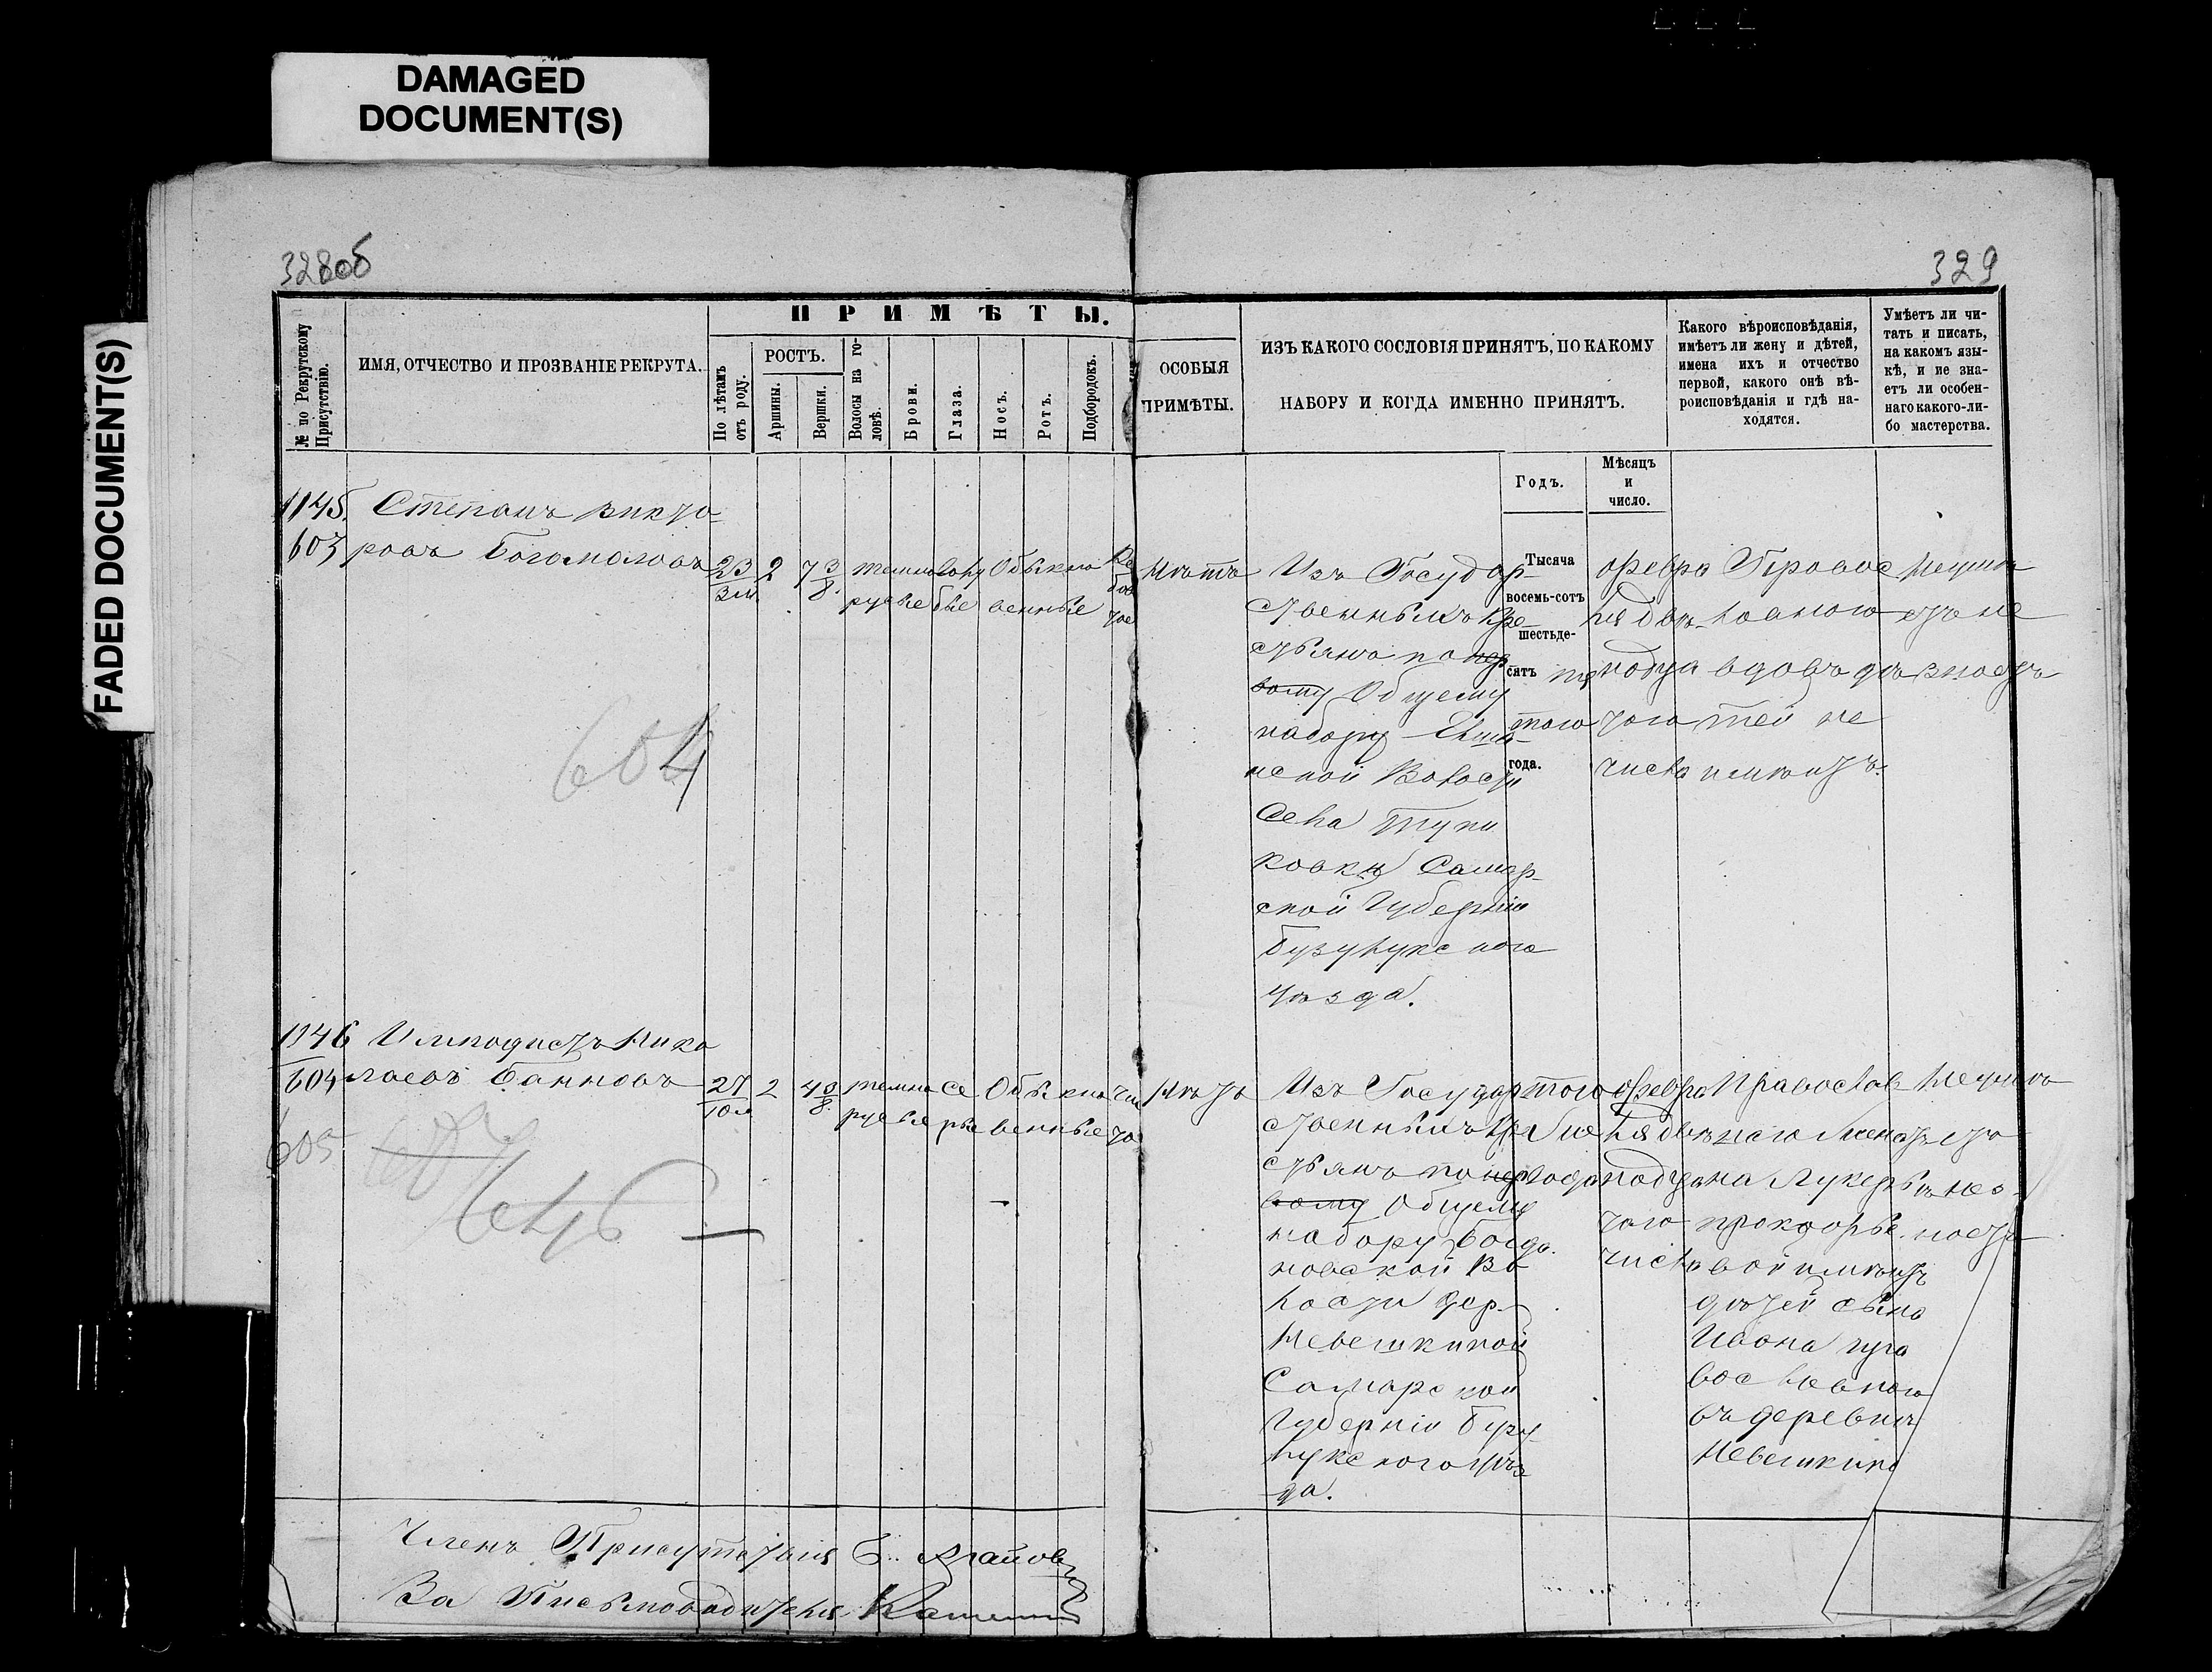 DAMAGED
DOCUMENT(S)
FADED DOCUMENT(S)
328об
329
№ по Рекрутскому Присутствію.
ИМЯ, ОТЧЕСТВО И ПРОЗВАНІЕ РЕКРУТА.
ПРИМѢТЫ.
По лѣтамъ отъ роду.
РОСТЪ.
Аршины.
Вершки.
Волосы на головѣ.
Брови.
Глаза.
Носъ.
Ротъ.
Подбородокъ.
ОСОБЫЯ
ПРИМѢТЫ.
ИЗЪ КАКОГО СОСЛОВІЯ ПРИНЯТЪ, ПО КАКОМУ
НАБОРУ И КОГДА ИМЕННО ПРИНЯТЪ.
Какого вѣроисповѣданія,
имѣетъ ли жену и дѣтей,
имена ихъ и отчество
первой, какого онѣ вѣ-
роисповѣданія и гдѣ на-
ходятся.
Умѣетъ ли чи-
тать и писать,
на какомъ язы-
кѣ, и не зна-
етъ ли особен-
наго какого-ли-
бо мастерства.
Годъ.
Мѣсяцъ
и
число.
1145. Степанъ Викто-
603 ровъ Богомоловъ
23 2 7 3/8
темно
русые
голу
бые
Обыкно
венные
нѣтъ
Изъ Государ-
ственныхъ Кре-
стьянъ по пер-
вому Общему
набору
ской Волости
Села
Самар-
ской Губерніи
Бузулукского
уѣзда.
Тысяча
восемь-сотъ
шестьде-
сятъ пя
того
года.
февра
ля двѣ
надца
таго
числа
Правос
лавного
вдовъ дѣ
тей не
имѣитъ.
Неумѣ
етъ не
знаетъ
604
1146 Имподистъ Нико
604 лаевъ Банновъ
27 2 4
темно
русые
се
рые
Обыкно
венные
нѣтъ
Изъ Государ
ственныхъ Кре
стьянъ по пер
вому Общему
набору Богда
новской Во
лости дер.
Невешкиной
Самарской
Губерніи Бузу
лукского уѣз
да.
того
же
года
февра
ля двѣ
надца
таго
числа
Православ
наго женатъ
на Лукерьѣ
Прокофье
вой имѣитъ
дѣтей сына
Ивана пра
вославного
въ деревнѣ
Невешкино
Неумѣ
етъ
нез
наетъ
605
646
Членъ Присутствія
За Письмоводителя